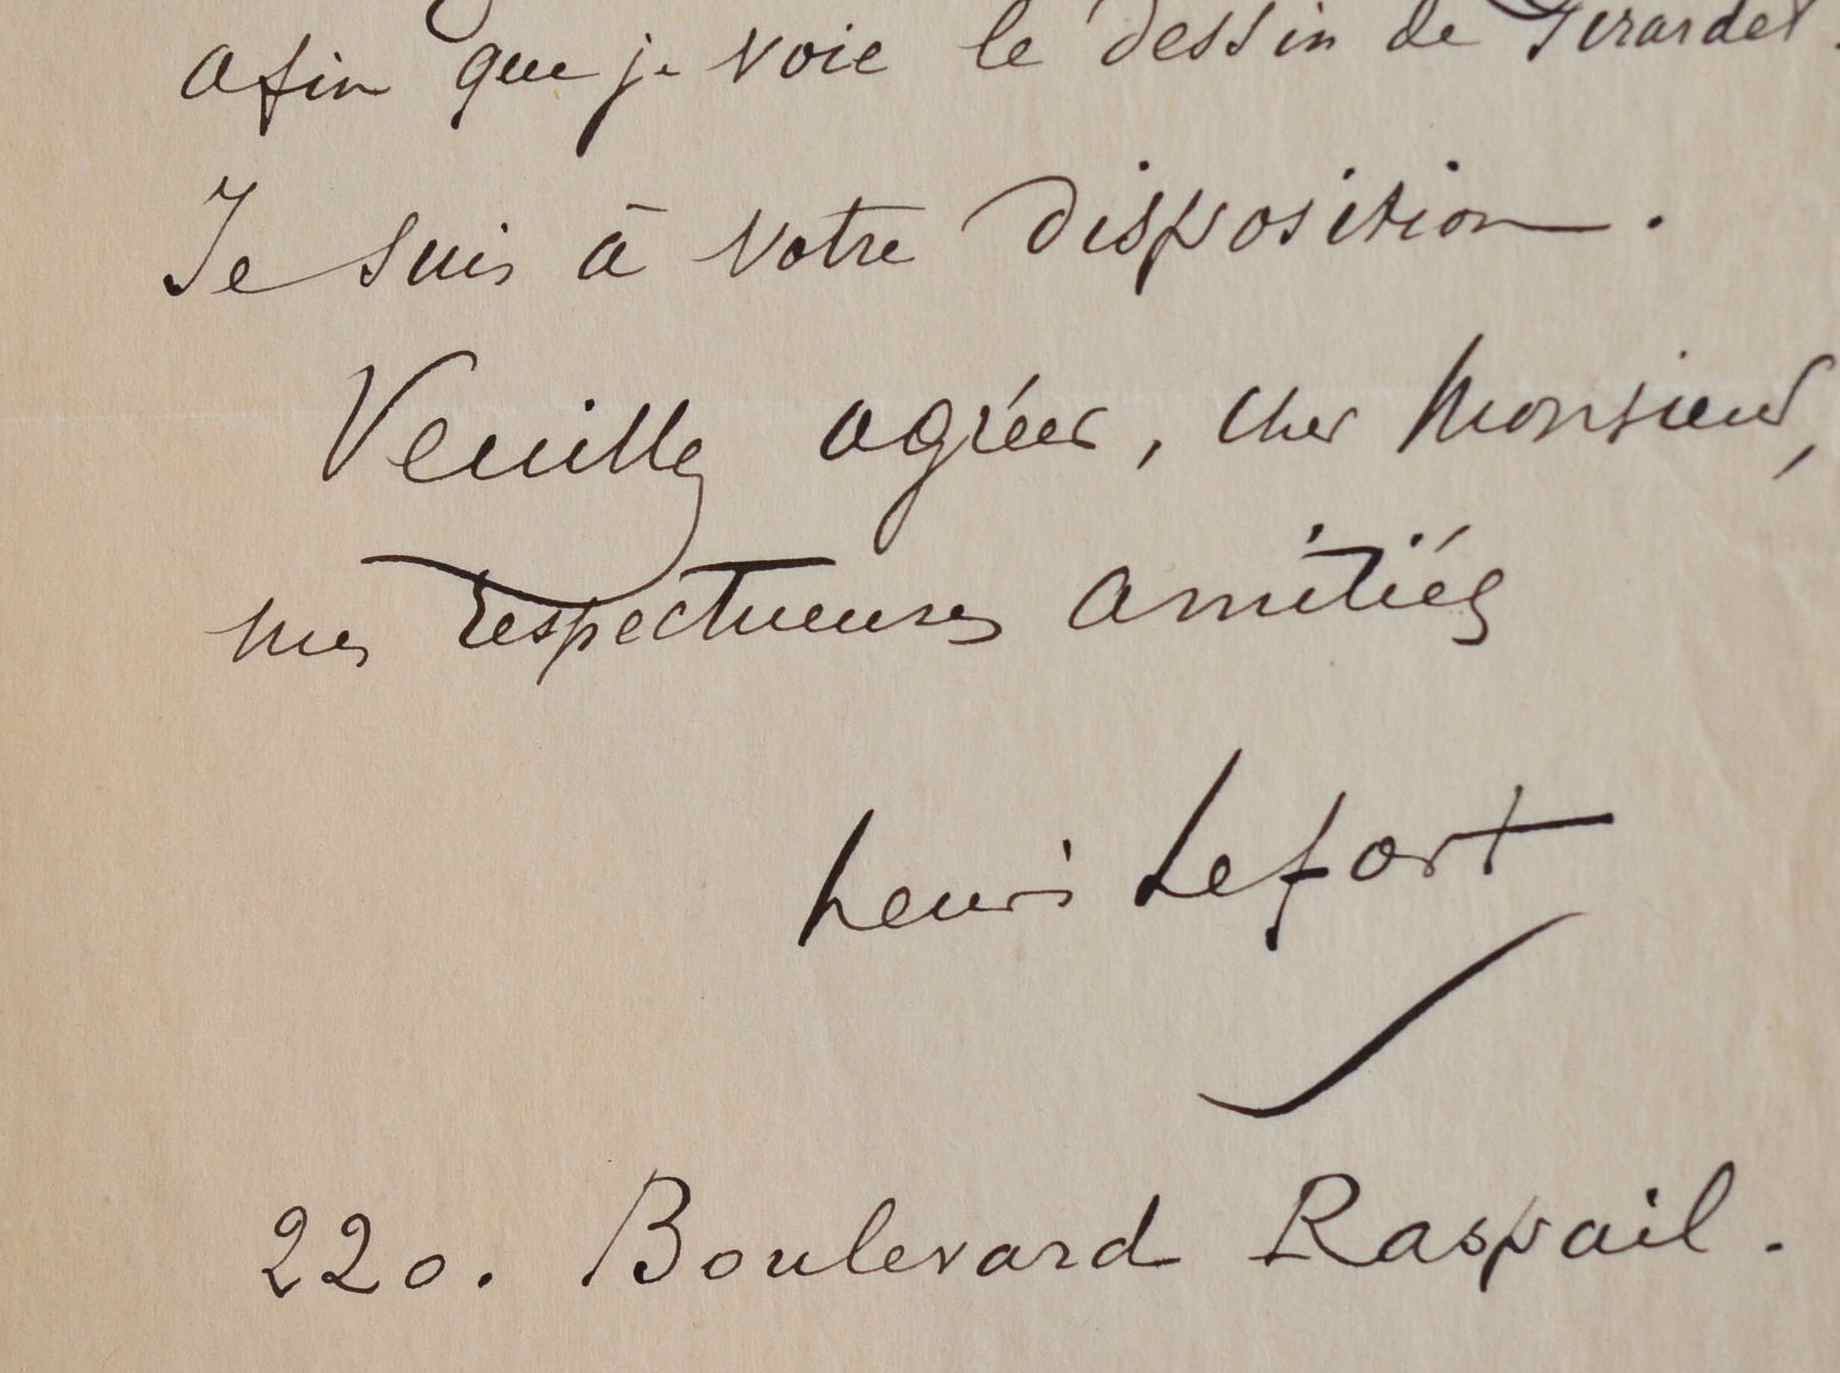 afin que je voie le dessin de Girardet.
Je suis à votre disposition.
Veuillez agréer, cher Monsieur,
mes respectueuses amitiés
Henri Lefort
220. Boulevard Raspail.